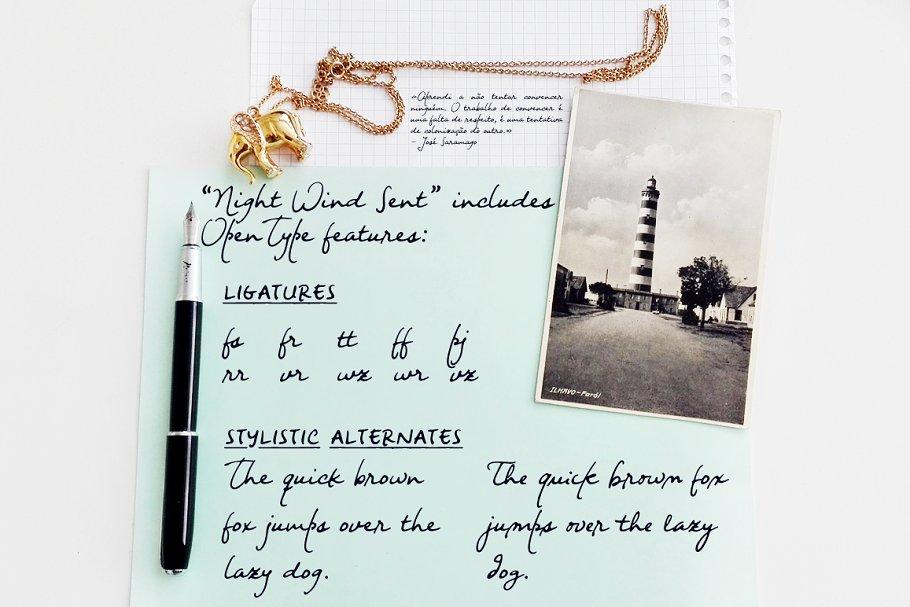 «Aprendi a não tentar convencer
ninguém. O trabalho de convencer é
uma falta de respeito, é uma tentativa
de colonização do outro.»
- José Saramago
“Night Wind Sent” includes
OpenType features:
LIGATURES
fs fr tt ff pj
rr vr wz wr vz
STYLISTIC ALTERNATES
The quick brown
fox jumps over the
lazy dog.
The quick brown fox
jumps over the lazy
dog.
ILHAVO-Farol